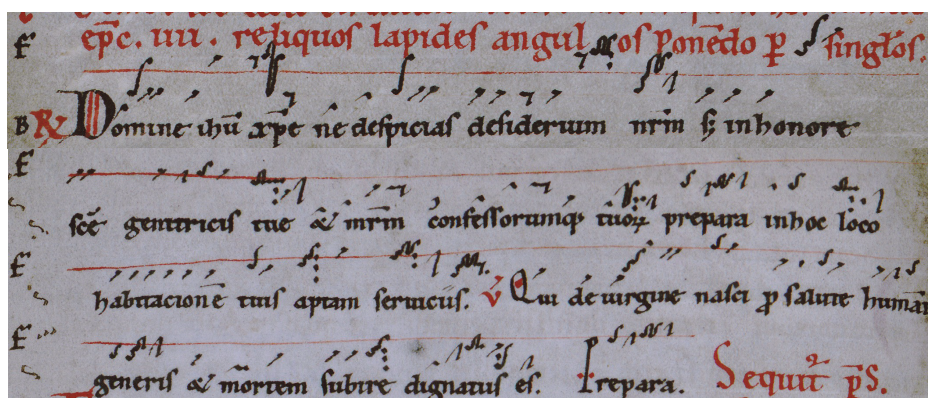 epc. iiii. reliquos lapides angulos ponedo p singlos.
R Domine ihu xpe ne despicias desiderium nrm s; in honore
sce genitricis tue & mrm confessorumq; tuoꝝ prepara in hoc loco
habitacione tuis aptam serviciis. V Qui de virgine nasci p salute human
generis & mortem subire dignatus es. Prepara. Sequit pS.